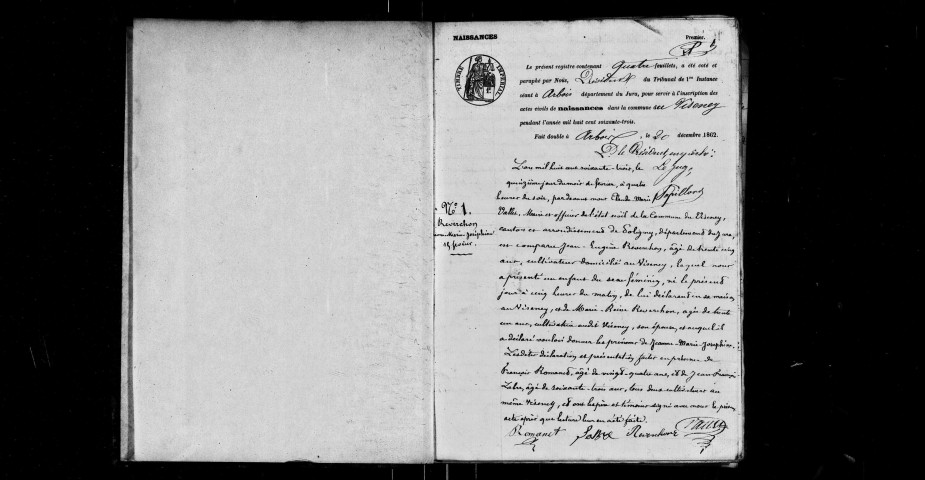 NAISSANCES
Premier.
TIMBRE IMPÉRIAL
Le présent registre contenant quatre feuillets, a été coté et
paraphé par Nous, Président du Tribunal de 1re Instance
séant à Arbois département du Jura, pour servir à l'inscription des
actes civils de naissances dans la commune de Viseney
pendant l'année mil huit cent soixante-trois.
Fait double à Arbois, le 20 décembre 1862.
Le Président empêché:
Le Juge,
Papillon
L'an mil huit cent soixante-trois, le
quinzième jour du mois de février, à quatre
heures du soir, par devant nous Claude Marie
Vallet, Maire et officier de l'état civil de la Commune du Viseney,
canton et arrondissement de Poligny, département du Jura,
est comparu Jean-Eugène Reverchon, âgé de trente cinq
ans, cultivateur domicilié au Viseney, lequel nous
a présenté un enfant du sexe féminin, né le présent
jour à cinq heures du matin, de lui déclarant en sa maison
au Viseney, et de Marie-Reine Reverchon, âgée de trente
un ans, cultivatrice audit Viseney, son épouse, et auquel il
a déclaré vouloir donner les prénoms de Jeanne-Marie-Joséphine.
Lesdites déclaration et présentation faites en présence de
François Romanet, âgé de vingt-quatre ans, et de Jean François
âgé de soixante-trois ans, tous deux cultivateurs au
même Viseney, et ont les père et témoins signé avec nous le présent
acte après que lecture leur en a été faite.
N° 1.
Reverchon
Jeanne-Marie-Joséphine
15 février.
Romanet Reverchon